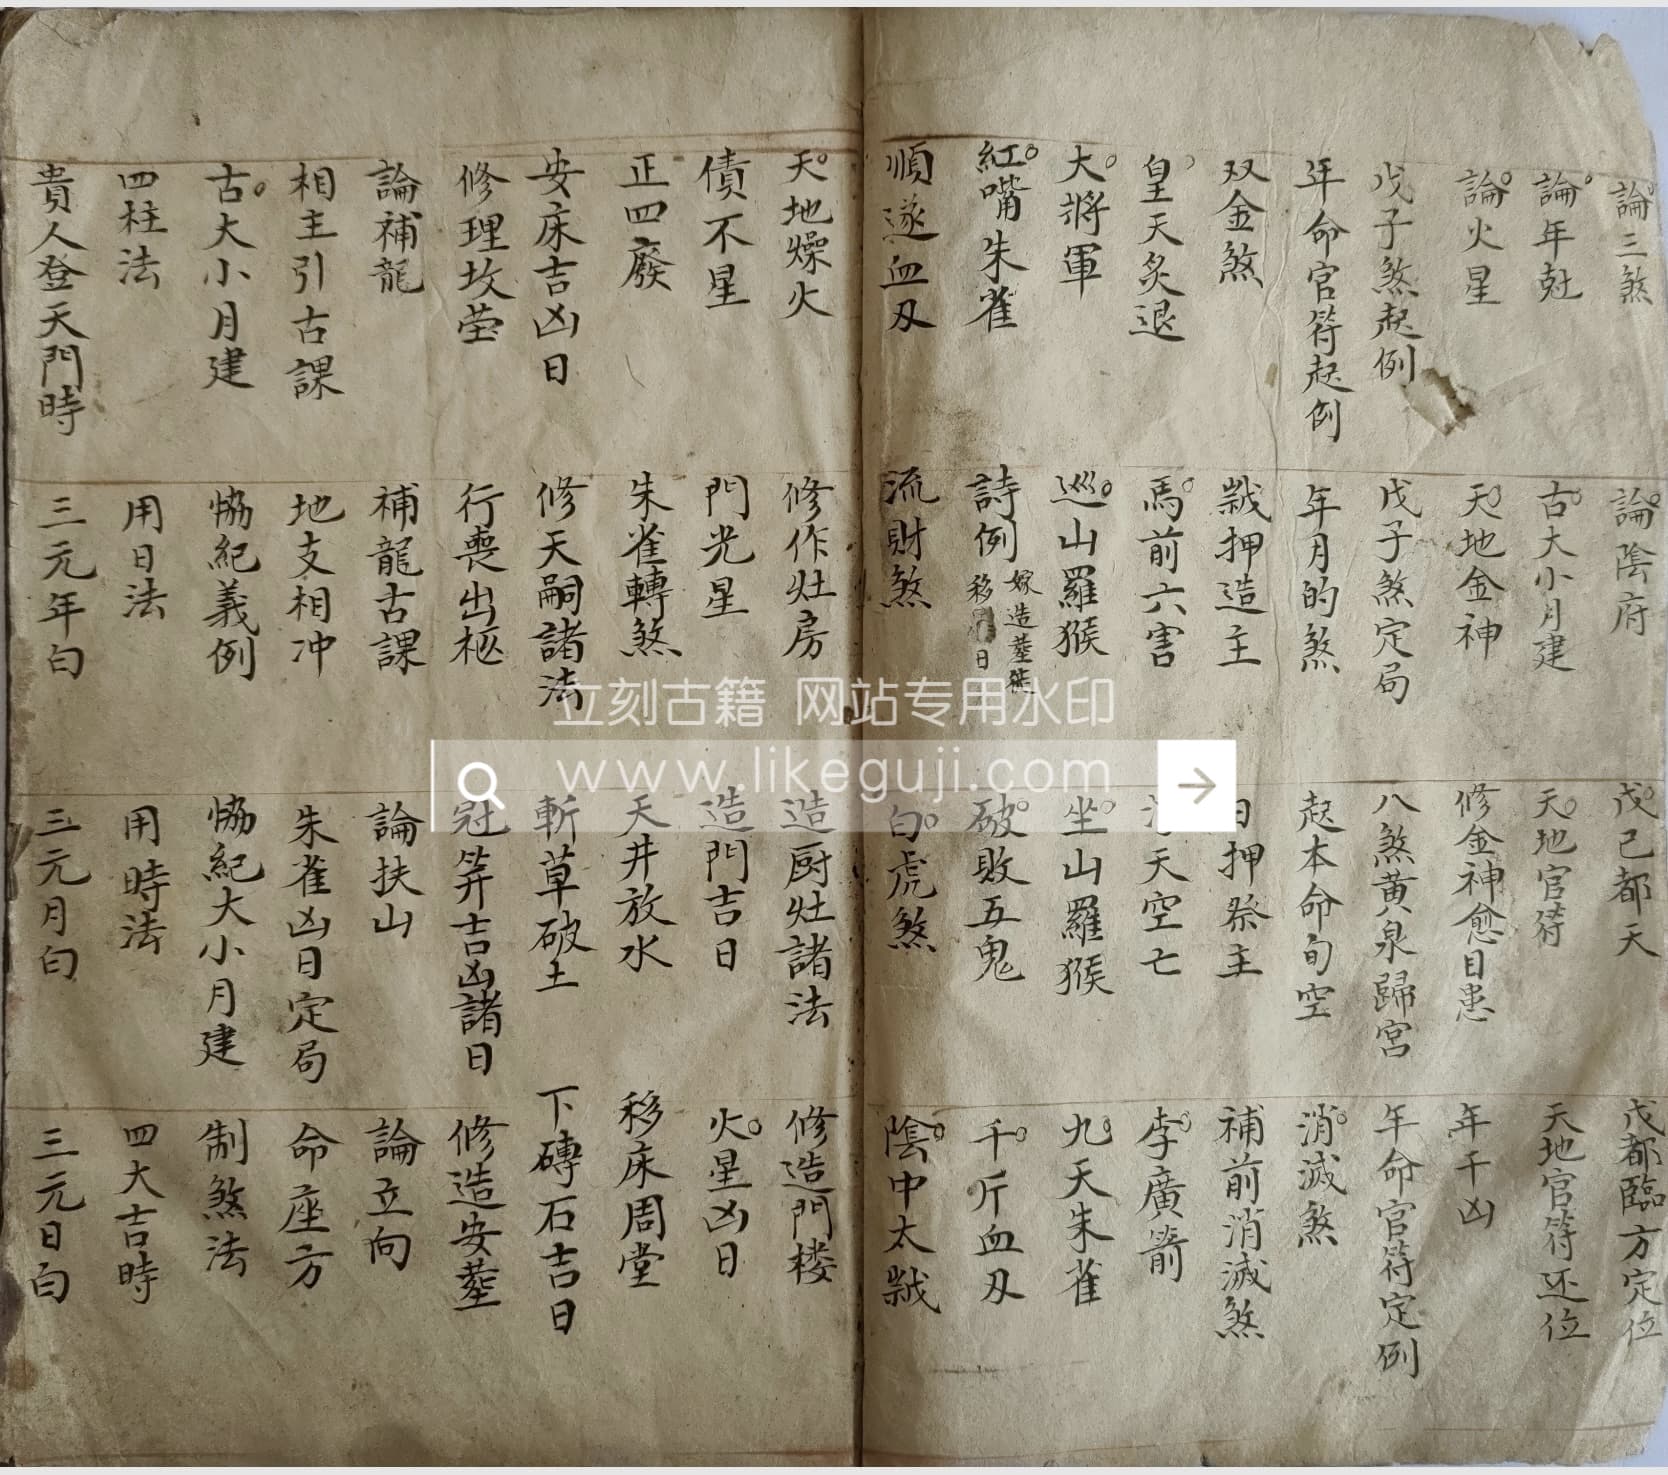 論三煞 論陰府 戊己都天 戊都臨方定位
論年尅 古大小月建 天地官符 天地官符还位
論火星 天地金神 修金神愈目患 年干凶
戊子煞起例 戊子煞定局 八煞黄泉歸宮 年命官符定例
年命官符起例 年月的煞 起本命旬空 消滅煞
双金煞 歲押造主 日押祭主 補前消滅煞
皇天炙退 馬前六害 天空亡 李廣箭
大將軍 巡山羅猴 坐山羅猴 九天朱雀
紅嘴朱雀 詩例 嫁造塟 移 日 破敗五鬼 千斤血刃
順逐血刃 流財煞 白虎煞 陰中太歲
天地燥火 修作灶房 造厨灶諸法 修造門楼
債不星 門光星 造門吉日 火星凶日
正四廢 朱雀轉煞 天井放水 移床周堂
安床吉凶日 修天嗣諸法 斬草破土 下磚石吉日
修理坟塋 行喪出柩 冠笄吉凶諸日 修造安塟
論補龍 補龍古課 論扶山 論立向
相主引古課 地支相冲 朱雀凶日定局 命座方
古大小月建 恊紀義例 恊紀大小月建 制煞法
四柱法 用日法 用時法 四大吉時
貴人登天門時 三元年白 三元月白 三元日白
立刻古籍 网站专用水印
www.likeguji.com